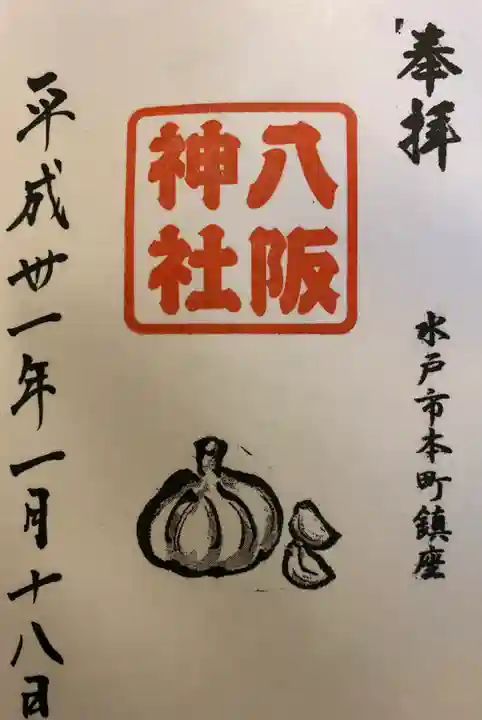 奉拝
水戸市本町鎮座
八阪
神社
平成卅一年一月十八日